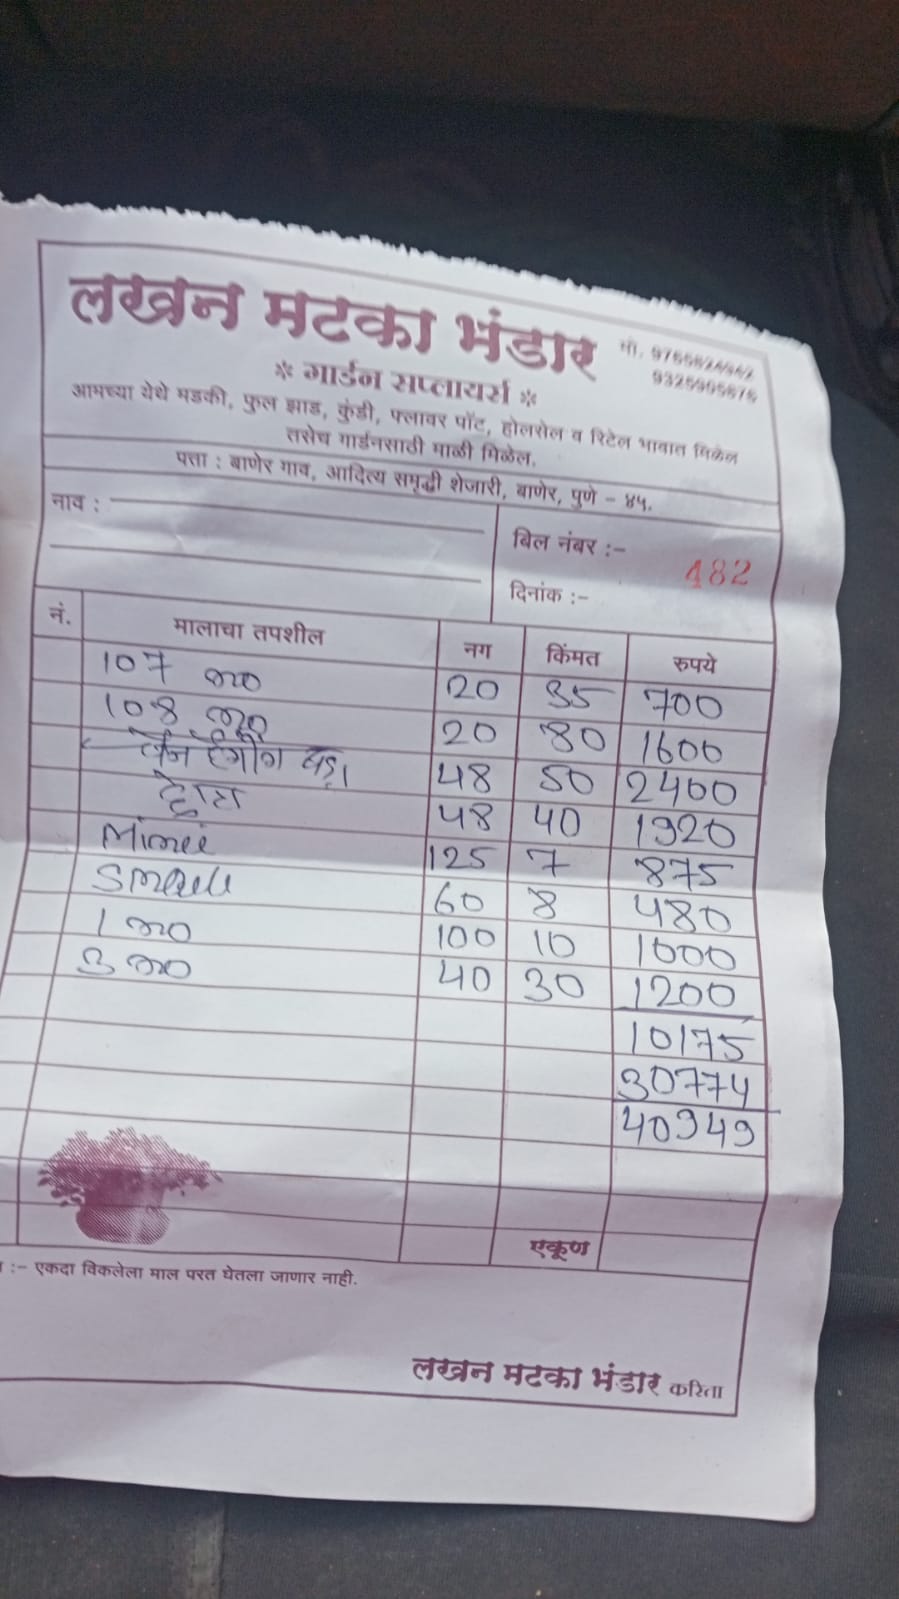 लखन मटका भंडार
मो. 9766824642
9325905876
* गार्डन सप्लायर्स *
आमच्या येथे मडकी, फुल झाड, कुंडी, फ्लावर पॉट, होलसेल व रिटेल भावात मिळेल
तसेच गार्डनसाठी माळी मिळेल.
पत्ता : बाणेर गाव, आदित्य समृद्धी शेजारी, बाणेर, पुणे - ४५.
नाव :
बिल नंबर :- 482
दिनांक :-
नं. मालाचा तपशील नग किंमत रुपये
107 नं० 20 35 700
108 नं० 20 80 1600
हँगींग 48 50 2400
48 40 1920
Mimi 125 7 875
Small 60 8 480
1 नं० 100 10 1000
3 नं० 40 30 1200
10175
30774
40949
एकूण
:- एकदा विकलेला माल परत घेतला जाणार नाही.
लखन मटका भंडार करिता